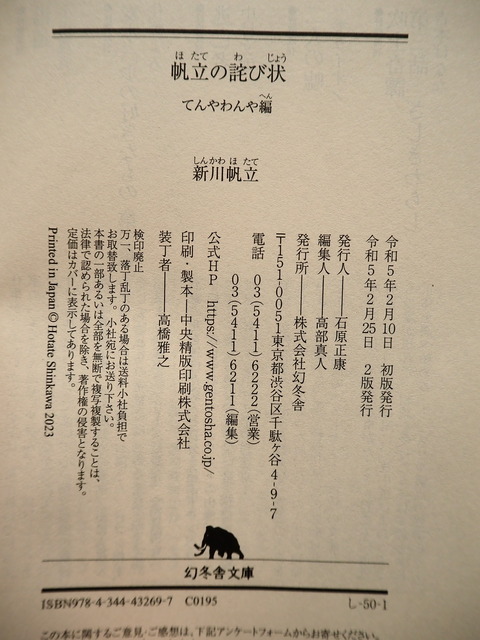 ほたて わ じょう
帆立の詫び状
へん
てんやわんや編
しんかわ ほたて
新川帆立
令和5年2月10日 初版発行
令和5年2月25日 2版発行
発行人――石原正康
編集人――高部真人
発行所――株式会社幻冬舎
〒151-0051東京都渋谷区千駄ヶ谷4-9-7
電話 03(5411)6222(営業)
03(5411)6211(編集)
公式HP https://www.gentosha.co.jp/
印刷・製本―中央精版印刷株式会社
装丁者――高橋雅之
検印廃止
万一、落丁乱丁のある場合は送料小社負担で
お取替致します。小社宛にお送り下さい。
本書の一部あるいは全部を無断で複写複製することは、
法律で認められた場合を除き、著作権の侵害となります。
定価はカバーに表示してあります。
Printed in Japan © Hotate Shinkawa 2023
幻冬舎文庫
ISBN978-4-344-43269-7 C0195
し-50-1
この本に関するご意見・ご感想は、下記アンケートフォームからお寄せください。